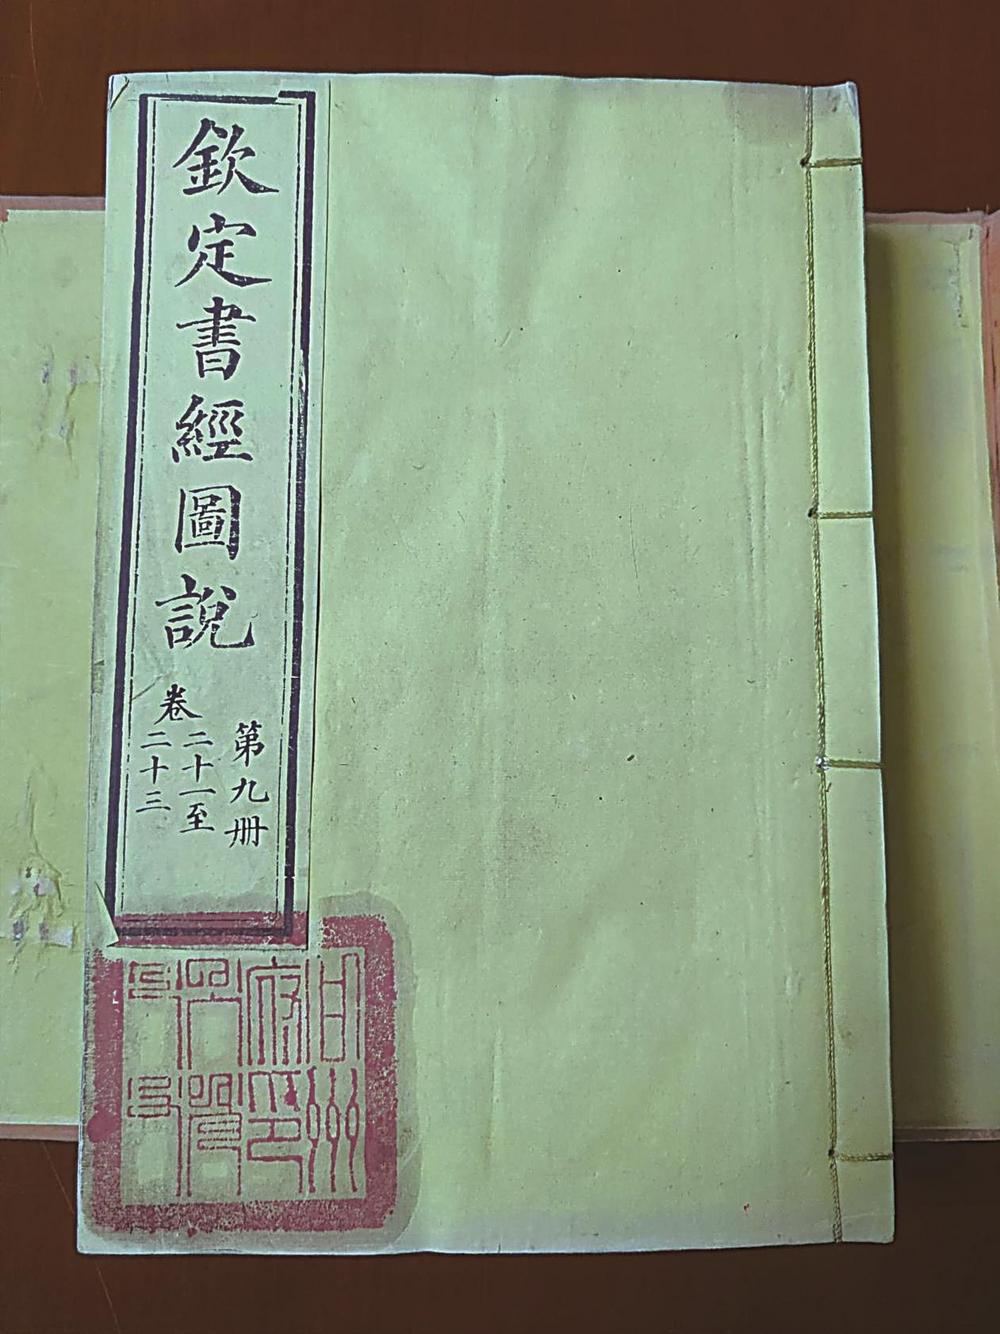 欽定書經圖說
第九册
卷二十一至
二十三
甘州
府印